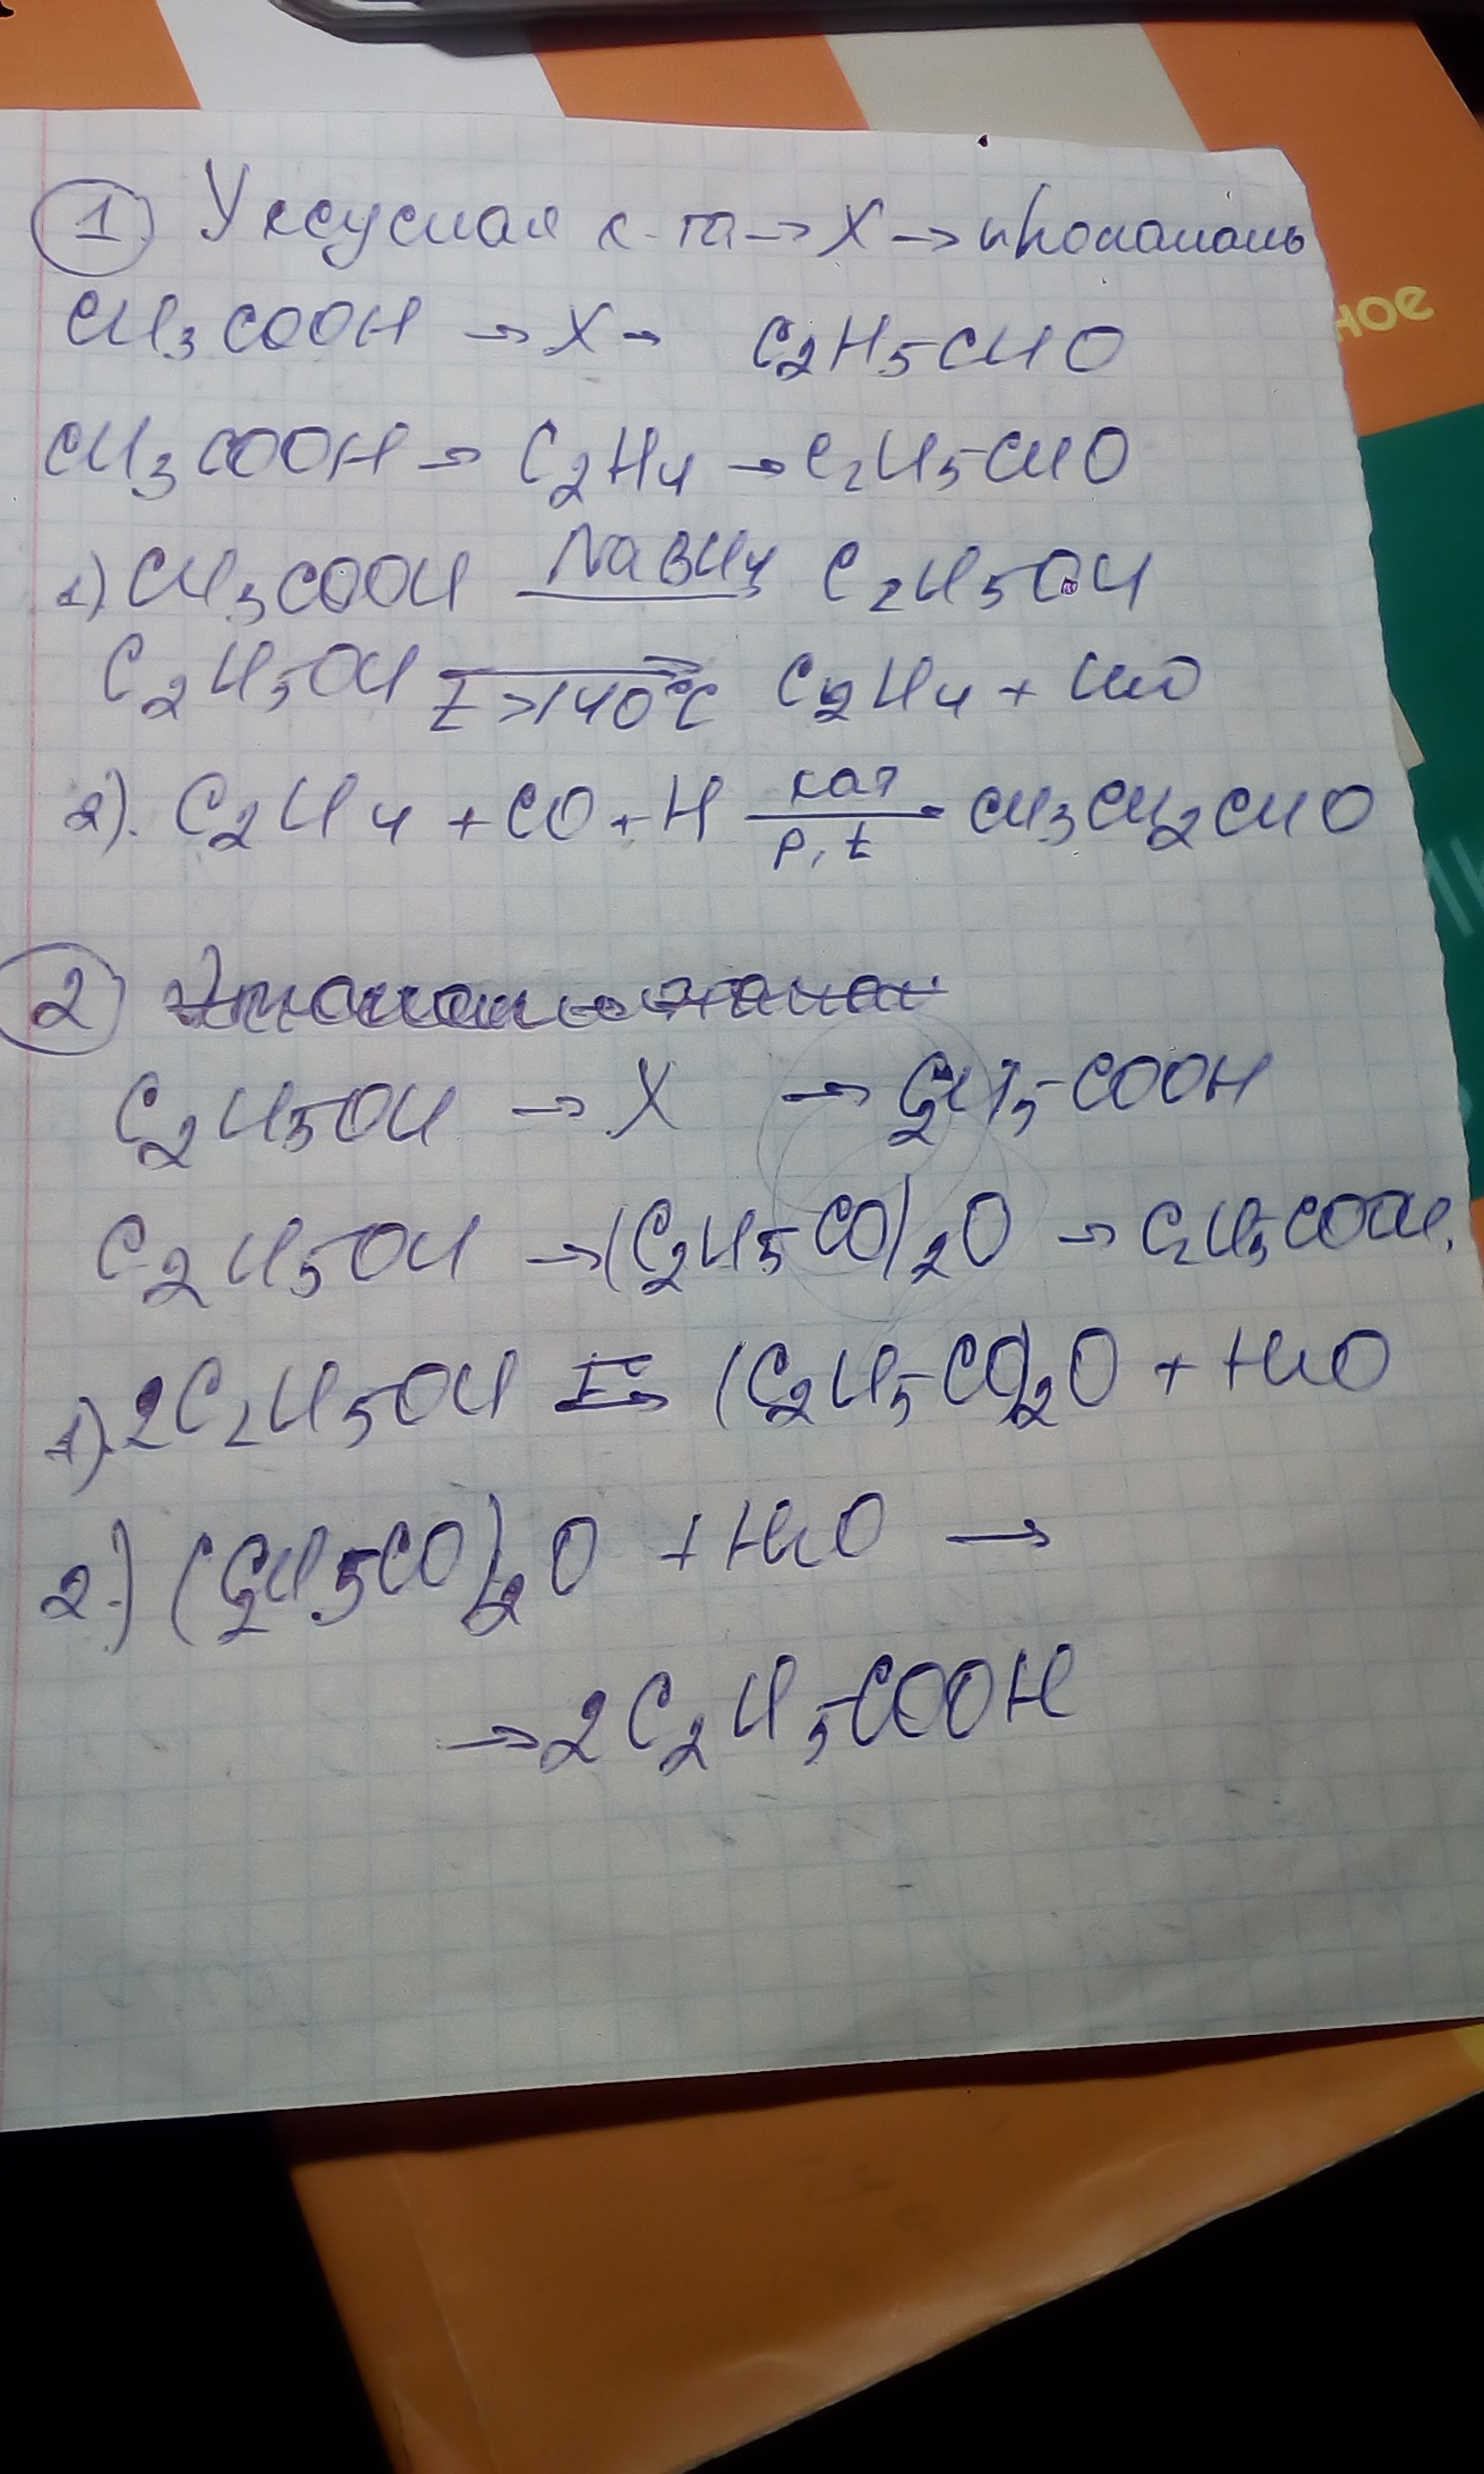 1. Уксусная к-та → X → пропаналь
ное
CH3COOH → X → C2H5CHO
CH3COOH → C2H4 → C2H5CHO
1) CH3COOH NaBH4 → C2H5OH
C2H5OH → t >140°C C2H4 + H2O
2). C2H4 + CO + H кат → p, t CH3CH2CHO
2
C2H5OH → X → C2H5COOH
C2H5OH → (C2H5CO)2O → C2H5COOH.
1). 2C2H5OH → (C2H5CO)2O + H2O
2.) (C2H5CO)2O + H2O →
→ 2C2H5COOH